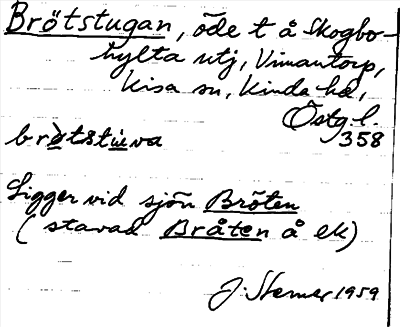 Brötstugan, öde t å Skogbo-
hylta utj, Vimantorp,
Kisa sn, Kinda hd,
Östg.l.
358
brötstuva
Ligger vid sjön Bröten
(stavad Bråten å ek)
J. Stemer 1959